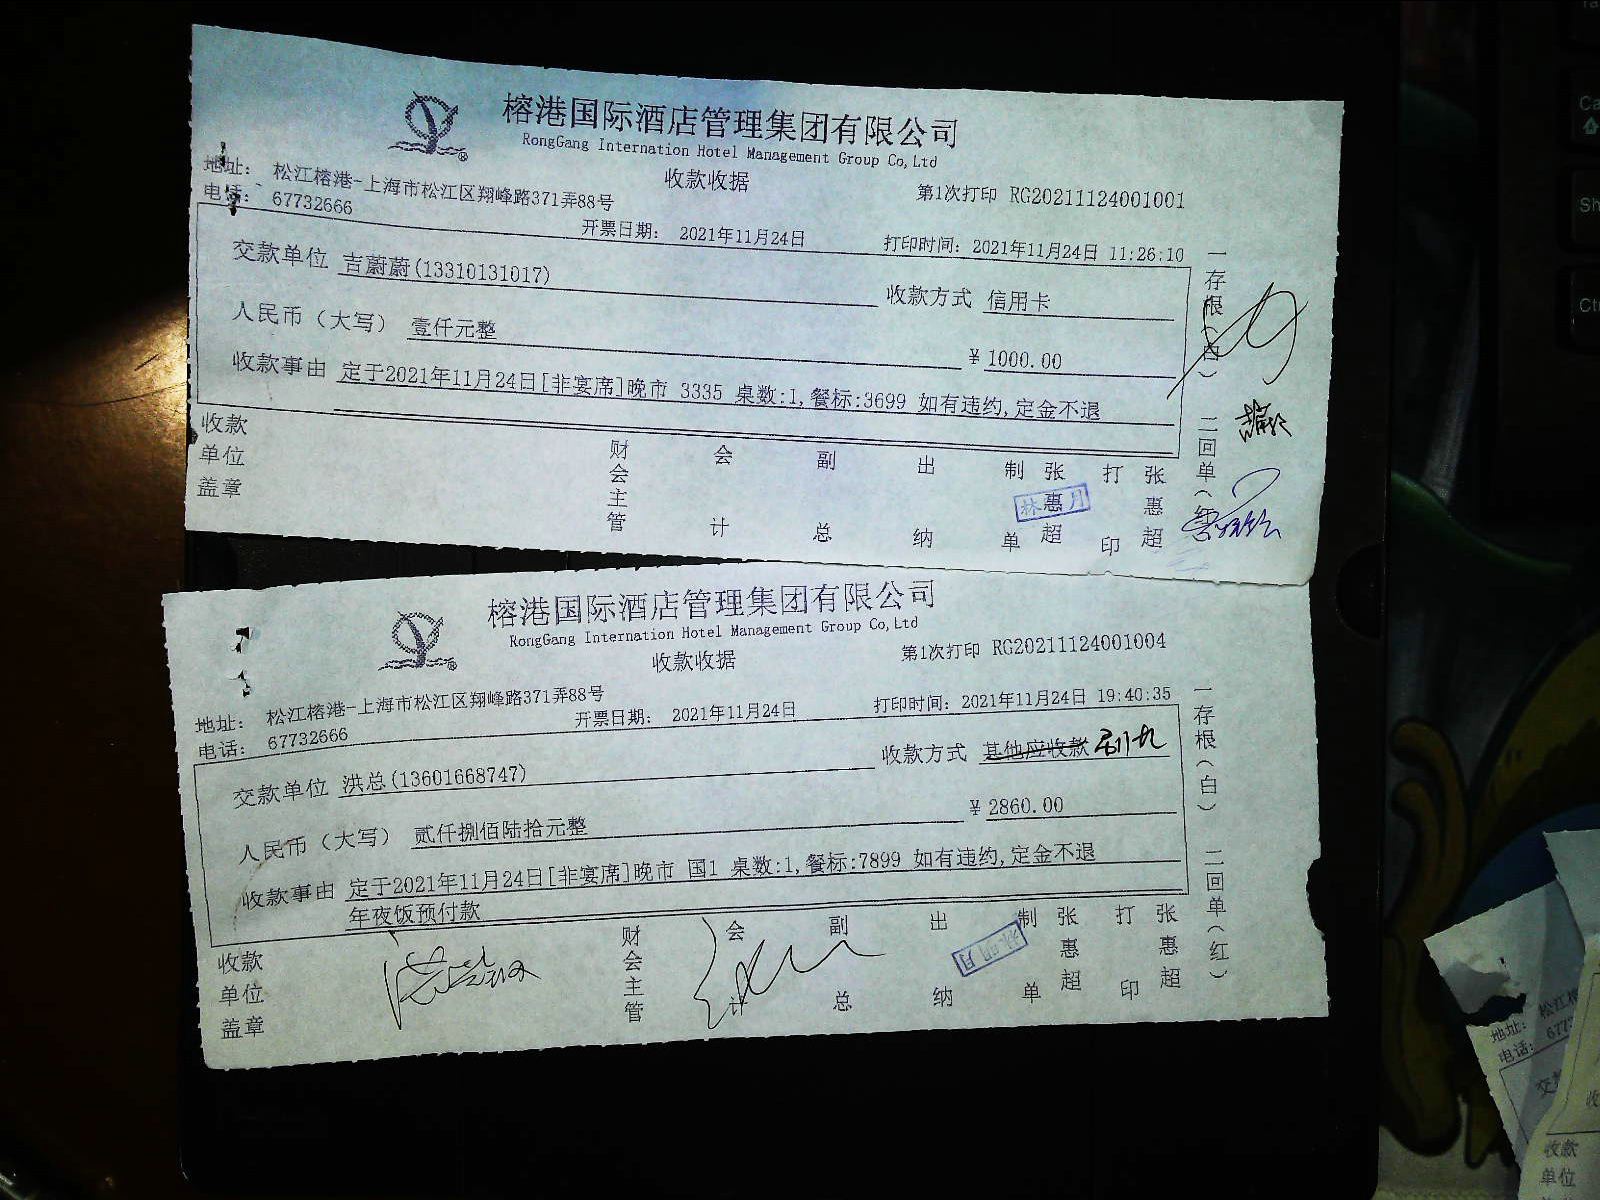 榕港国际酒店管理集团有限公司
RongGang Internation Hotel Management Group Co,Ltd
收款收据
第1次打印 RG20211124001001
地址： 松江榕港-上海市松江区翔峰路371弄88号
电话： 67732666
开票日期： 2021年11月24日
打印时间：2021年11月24日 11:26:10
交款单位 吉蔚蔚(13310131017)
收款方式 信用卡
人民币（大写） 壹仟元整
￥1000.00
收款事由 定于2021年11月24日[非宴席]晚市 3335 桌数:1,餐标:3699 如有违约,定金不退
收款单位盖章
财会主管
会计
副总
出纳
制单 张惠超
打印 张惠超
一存根（白）
二回单（红
榕港国际酒店管理集团有限公司
RongGang Internation Hotel Management Group Co,Ltd
收款收据
第1次打印 RG20211124001004
地址： 松江榕港-上海市松江区翔峰路371弄88号
电话： 67732666
开票日期： 2021年11月24日
打印时间：2021年11月24日 19:40:35
交款单位 洪总(13601668747)
收款方式 其他应收款
人民币（大写） 贰仟捌佰陆拾元整
￥2860.00
收款事由 定于2021年11月24日[非宴席]晚市 国1 桌数:1,餐标:7899 如有违约,定金不退
年夜饭预付款
收款单位盖章
财会主管
会计
副总
出纳
制单 张惠超
打印 张惠超
一存根（白）
二回单（红）
地址： 松江榕
电话： 677
交
收款
单位